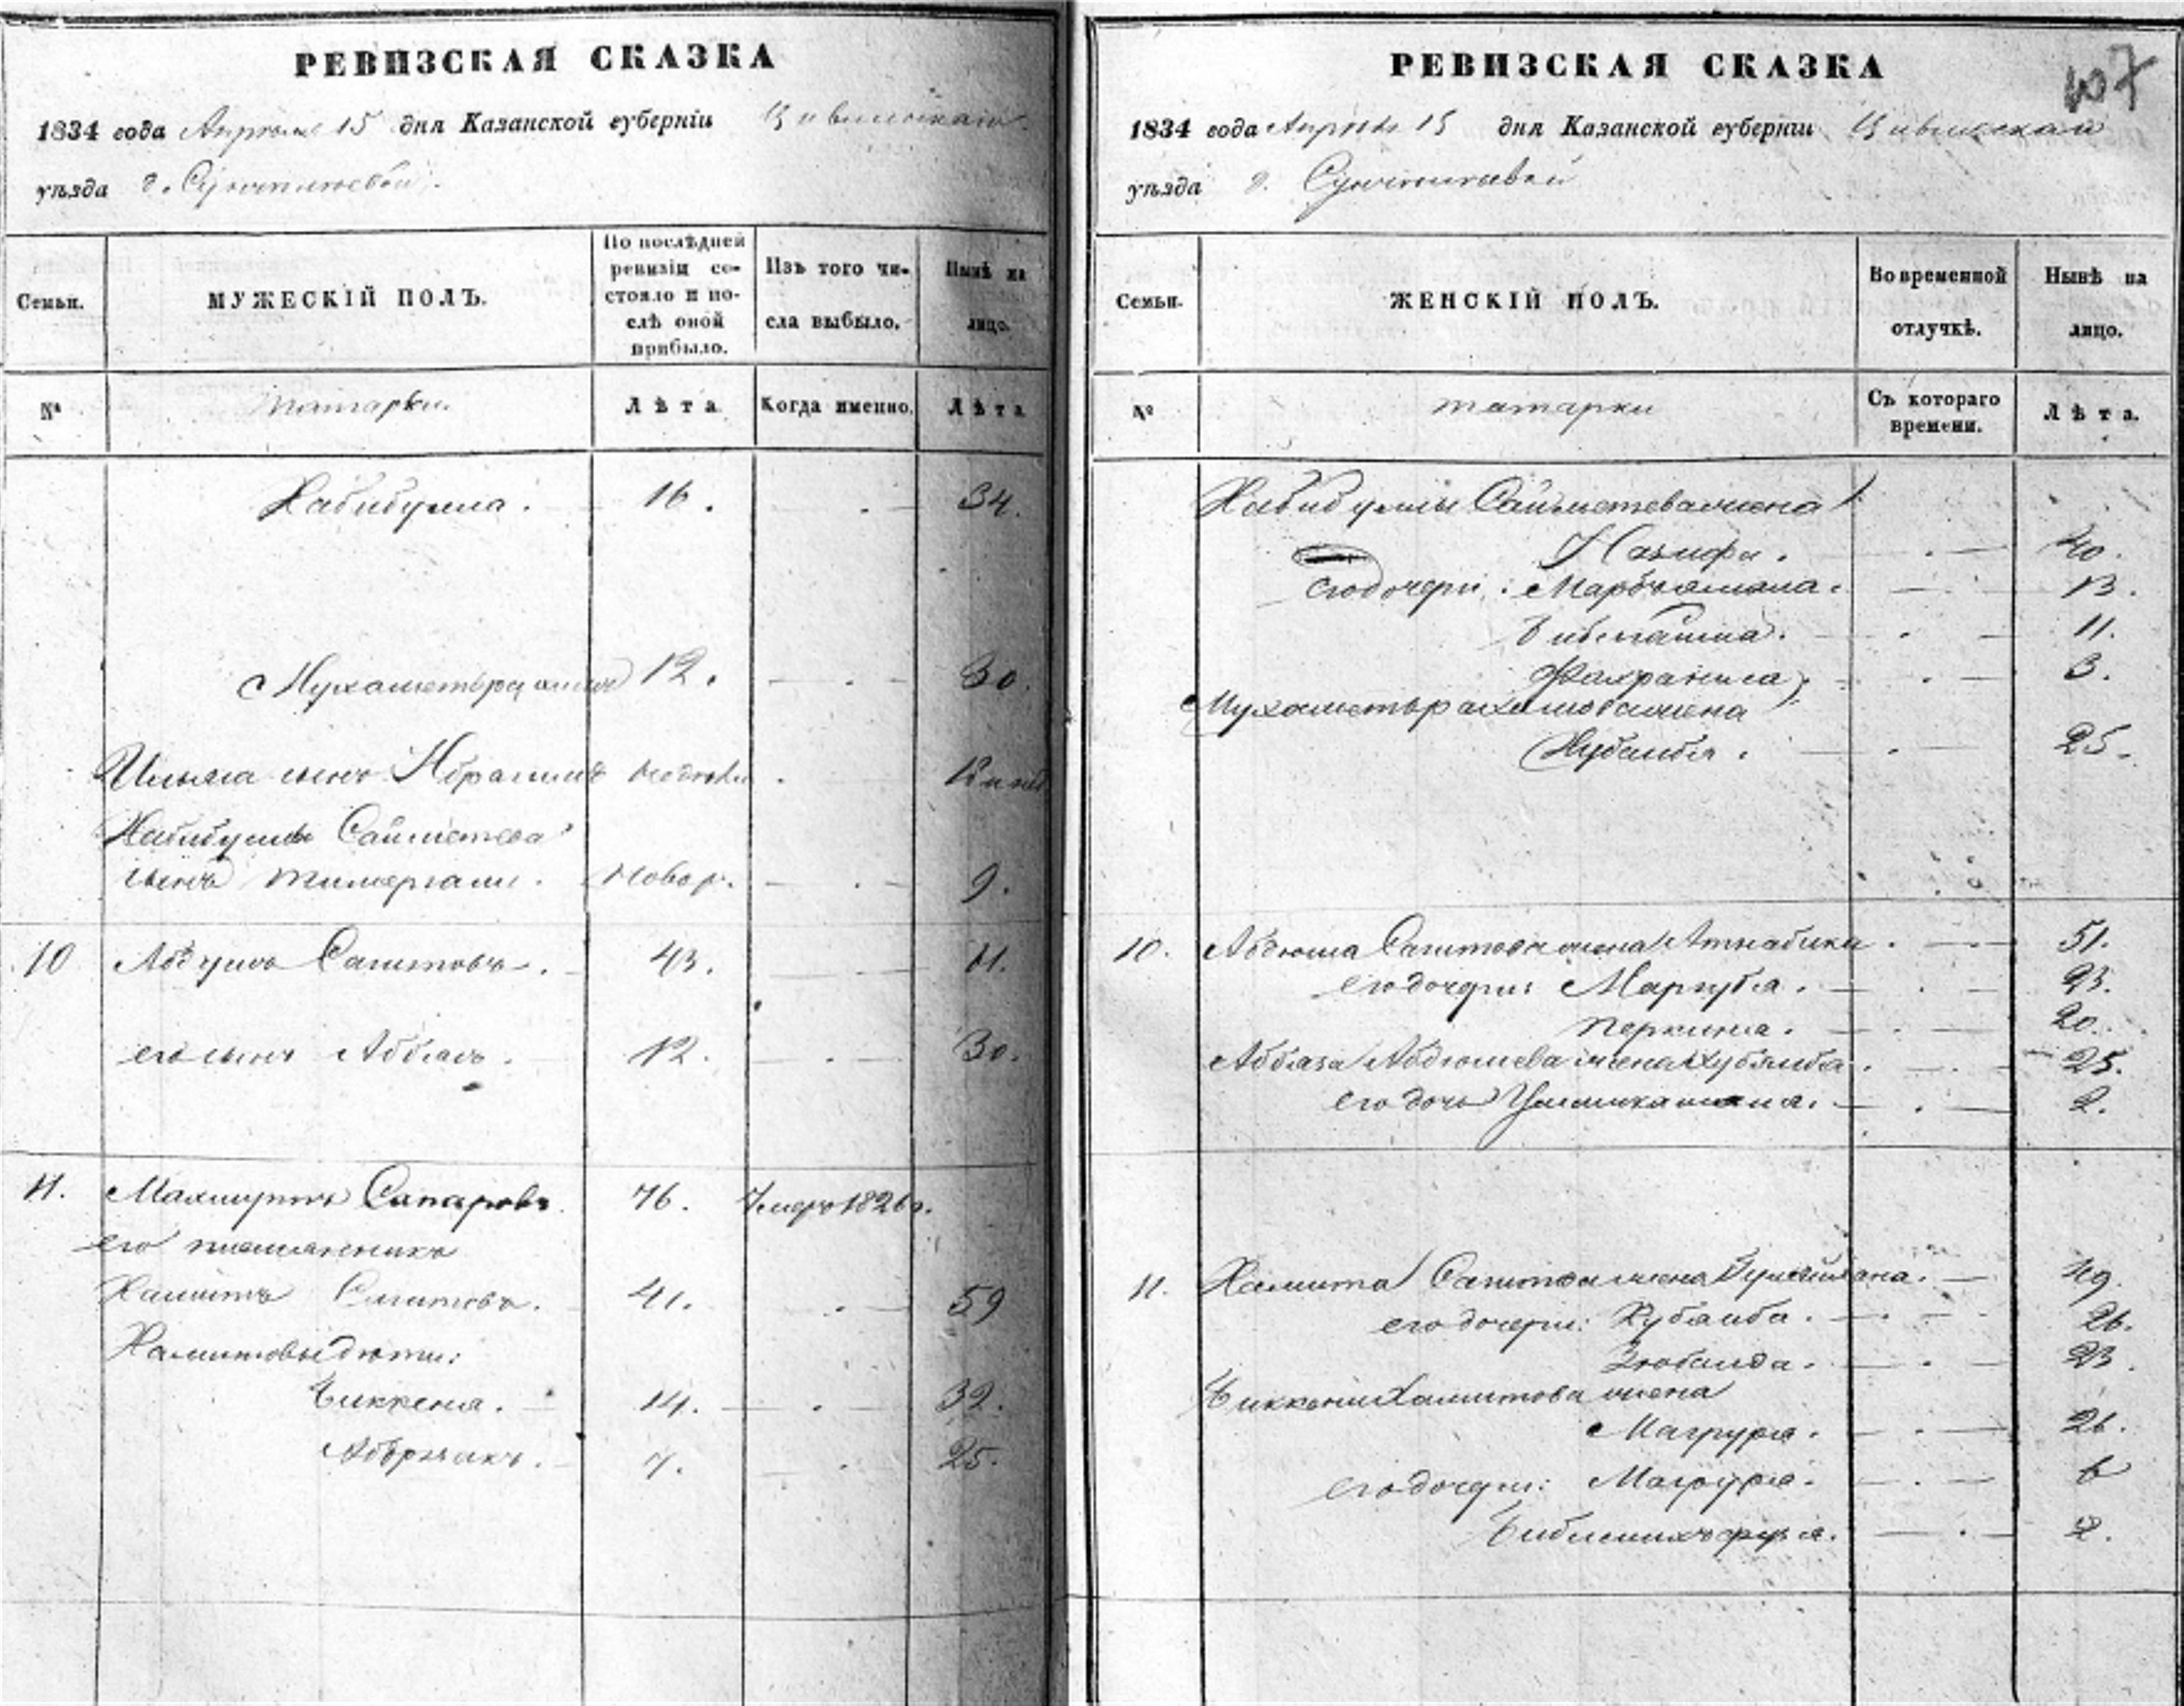 РЕВИЗСКАЯ СКАЗКА
1834 года Апреля 15 дня Казанской губерніи Цивильскаго
уѣзда д.
Семьи.
МУЖЕСКІЙ ПОЛЪ.
По послѣдней ревизіи состояло и послѣ оной прибыло.
Изъ того числа выбыло.
Нынѣ на лицо.
№
Лѣта
Когда именно.
Лѣта
Хабибулла. 16. 34.
Мухаметьрахимъ 12. 30.
сынъ Ибрагимъ
Хабибуллы Сайметева
сынъ Тимергали. новор. 9.
10 Абдулъ Сагитовъ. 43.
его сынъ Аббясъ. 12. 30.
11. Махмутъ Сапаровъ 76. Умеръ 1826 г.
его племянникъ
Хамитъ Сагитовъ. 41. 59
Хамитовы дѣти:
Биккеня. 14. 32.
7. 25.
РЕВИЗСКАЯ СКАЗКА
107
1834 года Апрѣля 15 дня Казанской губерніи
уѣзда д.
Семьи.
ЖЕНСКІЙ ПОЛЪ.
Во временной отлучкѣ.
Нынѣ на лицо.
№
татарки
Съ котораго времени.
Лѣта.
Хабибуллы Сайметева жена
Назифа. 40.
его дочери: Марбъямала. 13.
11.
Фахраниса 3.
Мухаметьрахимова жена
Хубаиба. 25.
10. Абдюша Сагитова жена Атнабика. 51.
его дочери: Маргуба. 23.
20.
Аббяза Абдюшева жена Хубяиба. 25.
его дочь 2.
11. Хамита Сагитова жена 49.
его дочери: Хубяиба. 26.
Зюбаида. 23.
Биккени Хамитова жена
Магруря. 26.
его дочери: Магруря. 6
2.